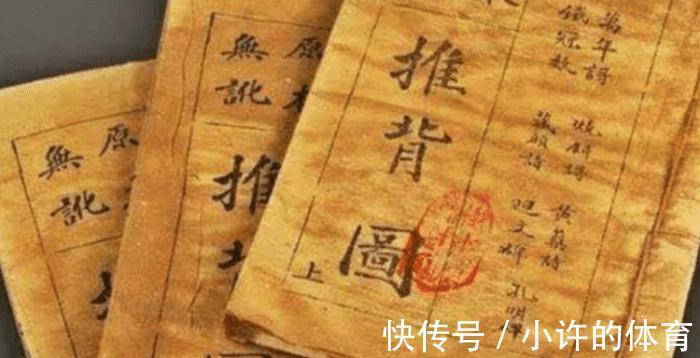 萬年謌 燒餅謌 黃蘗詩
鐵冠数 藏頭詩 廻文碑 孔明
推背圖
上
原本
無訛
推背
原
無訛
快传号 / 小许的体育